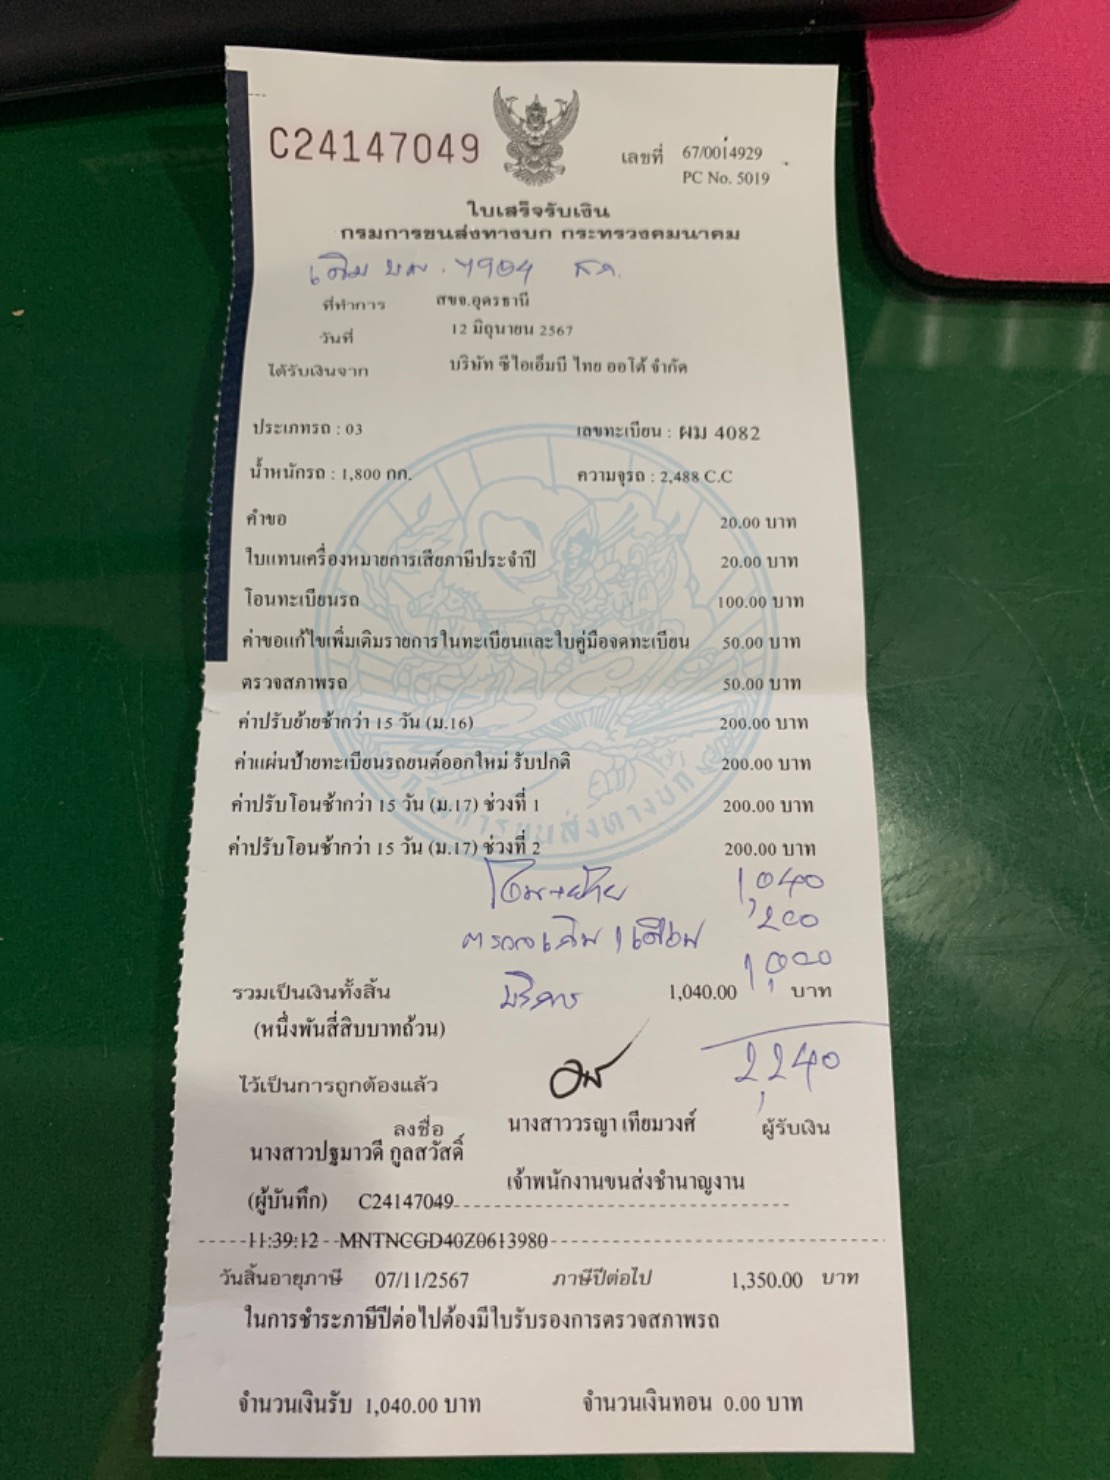 C24147049
เลขที่ 67/0014929
PC No. 5019
ใบเสร็จรับเงิน
กรมการขนส่งทางบก กระทรวงคมนาคม
เดิม บม. 7904 สก.
ที่ทำการ สขจ.อุดรธานี
วันที่ 12 มิถุนายน 2567
ได้รับเงินจาก บริษัท ซีไอเอ็มบี ไทย ออโต้ จำกัด
ประเภทรถ : 03 เลขทะเบียน : ผม 4082
น้ำหนักรถ : 1,800 กก. ความจุรถ : 2,488 C.C
คำขอ 20.00 บาท
ใบแทนเครื่องหมายการเสียภาษีประจำปี 20.00 บาท
โอนทะเบียนรถ 100.00 บาท
ค่าขอแก้ไขเพิ่มเติมรายการในทะเบียนและใบคู่มือจดทะเบียน 50.00 บาท
ตรวจสภาพรถ 50.00 บาท
ค่าปรับย้ายช้ากว่า 15 วัน (ม.16) 200.00 บาท
ค่าแผ่นป้ายทะเบียนรถยนต์ออกใหม่ รับปกติ 200.00 บาท
ค่าปรับโอนช้ากว่า 15 วัน (ม.17) ช่วงที่ 1 200.00 บาท
ค่าปรับโอนช้ากว่า 15 วัน (ม.17) ช่วงที่ 2 200.00 บาท
กรมการขนส่งทางบก
โอน+ย้าย 1,040
ตรวจเดิม 1 เดือน 200
บริการ 1,000
รวมเป็นเงินทั้งสิ้น 1,040.00 บาท
(หนึ่งพันสี่สิบบาทถ้วน)
2,240
ไว้เป็นการถูกต้องแล้ว
ลงชื่อ นางสาววรญา เทียมวงศ์ ผู้รับเงิน
นางสาวปฐมาวดี กูลสวัสดิ์
เจ้าพนักงานขนส่งชำนาญงาน
(ผู้บันทึก) C24147049
11:39:12 MNTNCGD40Z0613980
วันสิ้นอายุภาษี 07/11/2567 ภาษีปีต่อไป 1,350.00 บาท
ในการชำระภาษีปีต่อไปต้องมีใบรับรองการตรวจสภาพรถ
จำนวนเงินรับ 1,040.00 บาท จำนวนเงินทอน 0.00 บาท